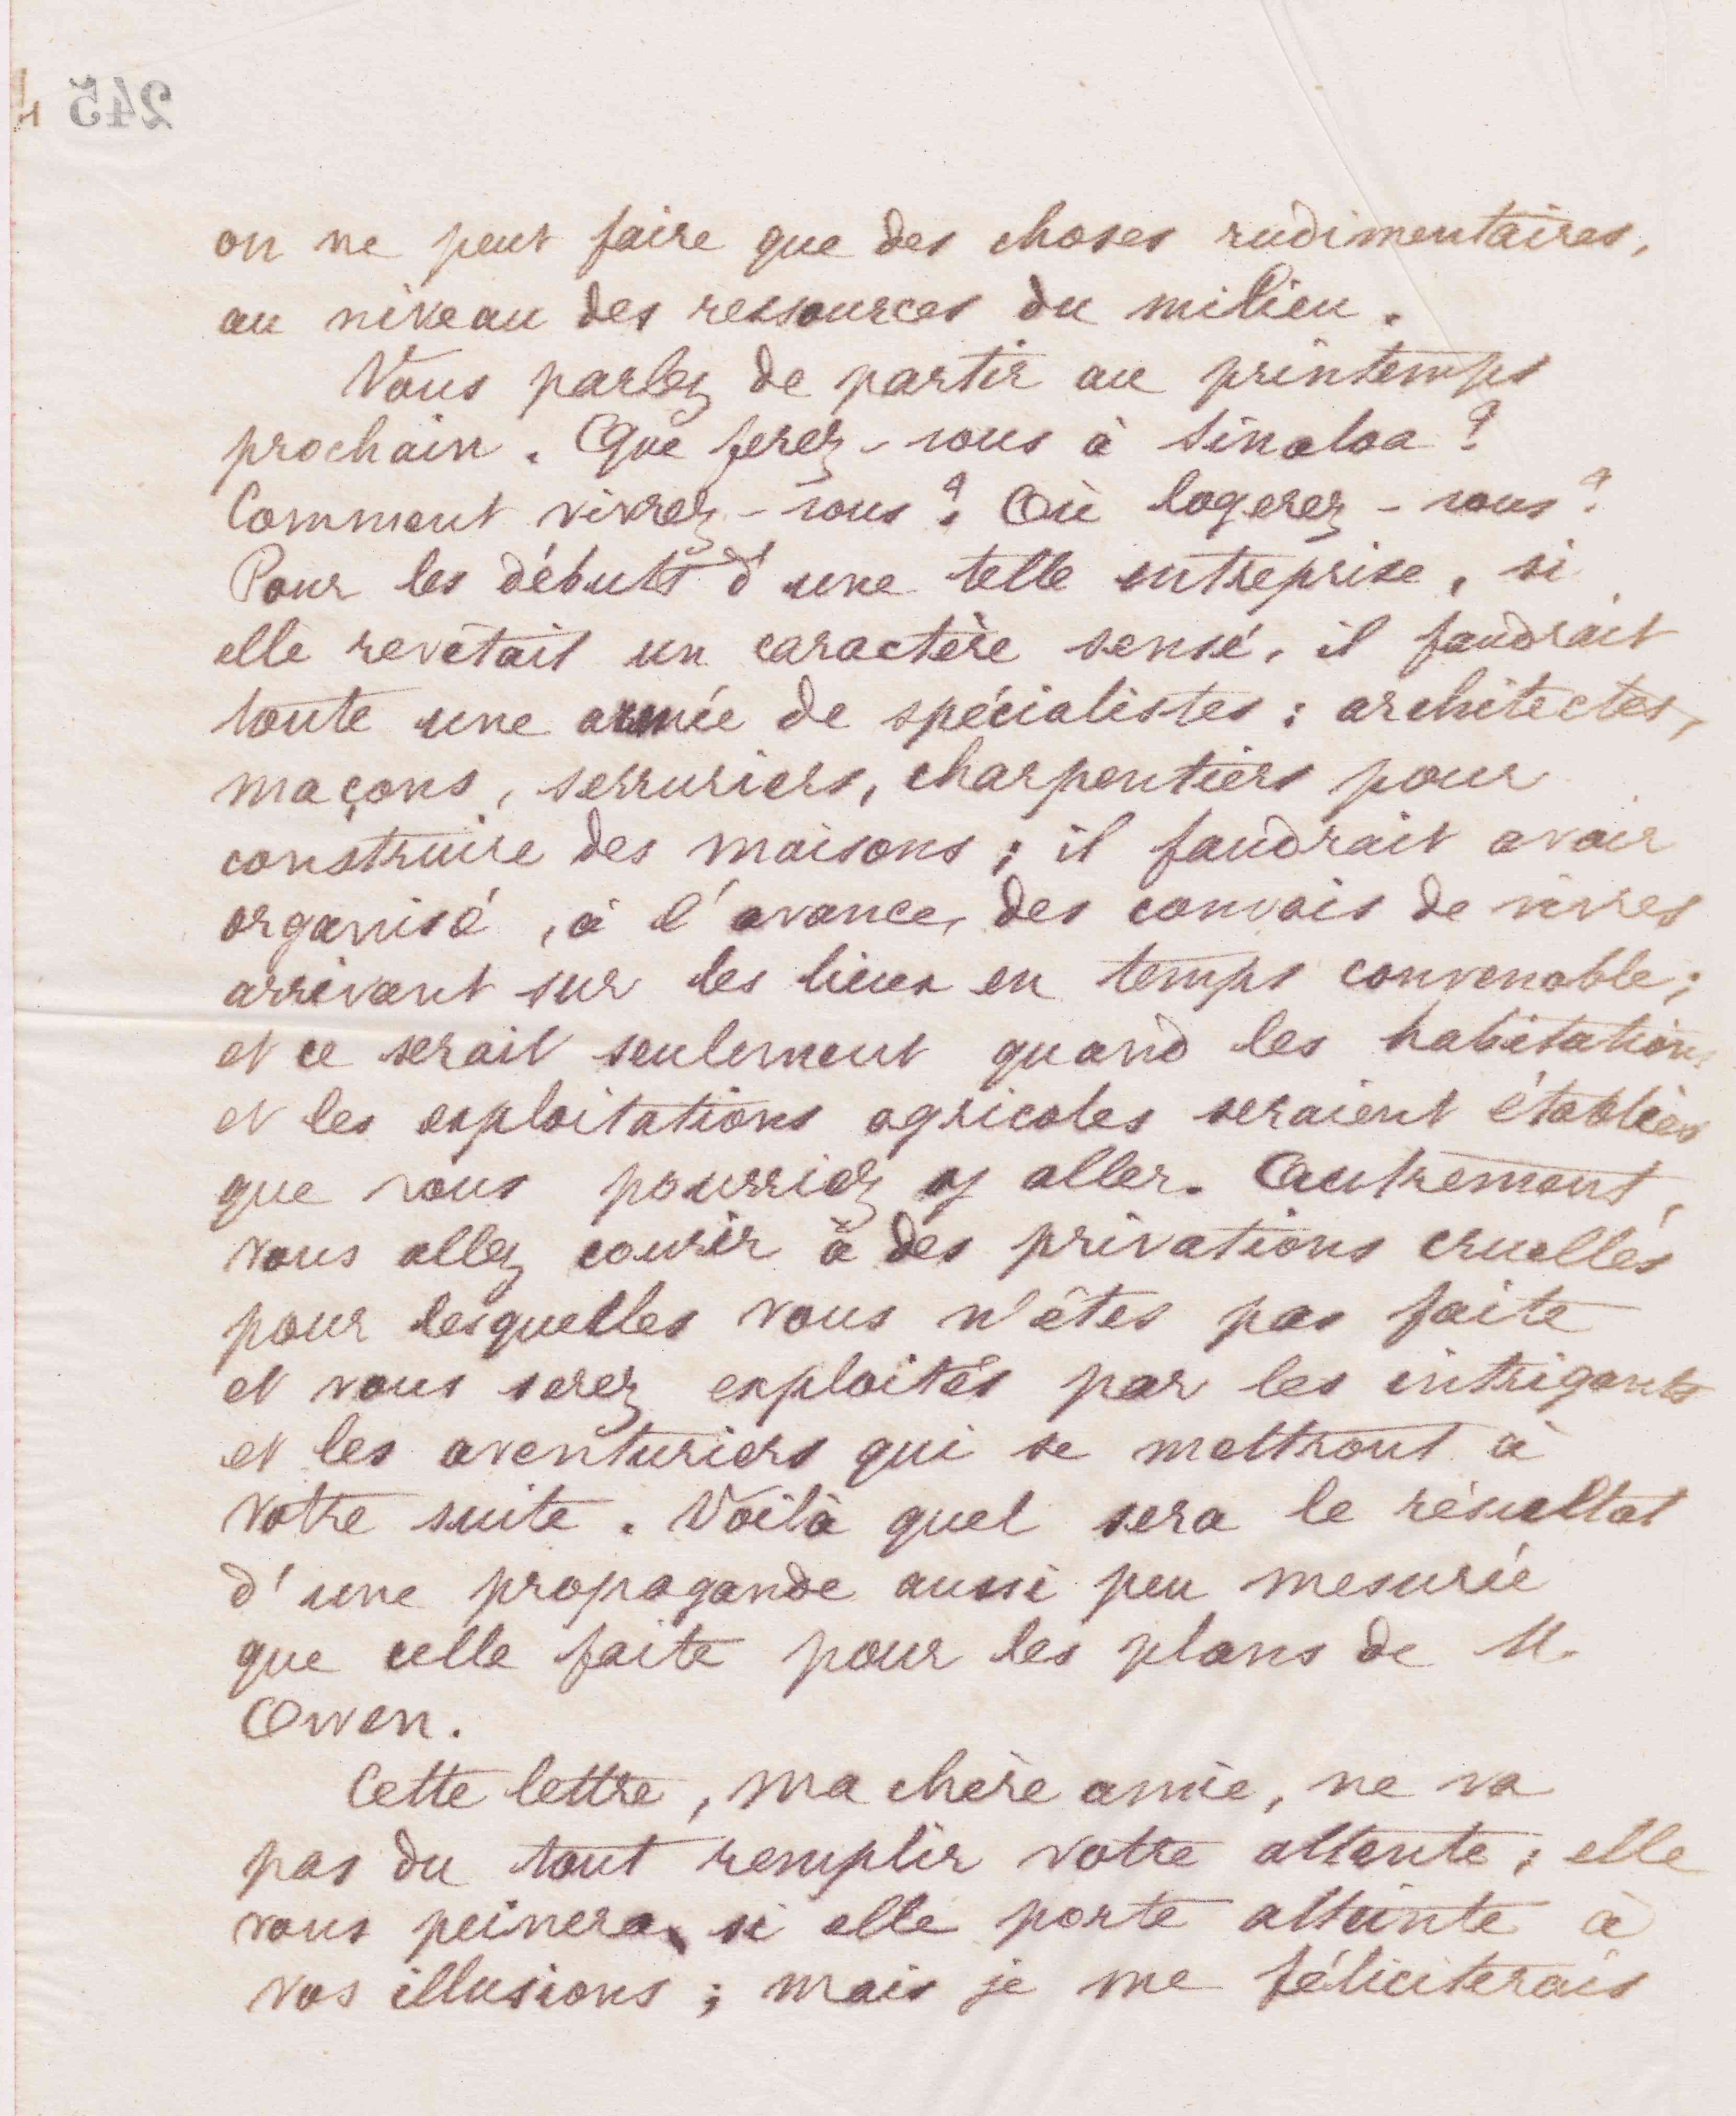 245
on ne peut faire que des choses rudimentaires,
au niveau des ressources du milieu.
Vous parlez de partir au printemps
prochain. Que ferez-vous à Sinaloa ?
Comment vivrez-vous ? Où logerez-vous ?
Pour les débuts d'une telle entreprise, si
elle revêtait un caractère sensé, il faudrait
toute une armée de spécialistes : architectes,
maçons, serruriers, charpentiers pour
construire des maisons ; il faudrait avoir
organisé, à l'avance, des convois de vivres
arrivant sur les lieux en temps convenable ;
et ce serait seulement quand les habitations
et les exploitations agricoles seraient établies
que vous pourriez y aller. Autrement,
vous allez courir à des privations cruelles
pour lesquelles vous n'êtes pas faite
et vous serez exploités par les intrigants
et les aventuriers qui se mettront à
votre suite. Voilà quel sera le résultat
d'une propagande aussi peu mesurée
que celle faite pour les plans de M.
Owen.
Cette lettre, ma chère amie, ne va
pas du tout remplir votre attente ; elle
vous peinera si elle porte atteinte à
vos illusions ; mais je me féliciterais